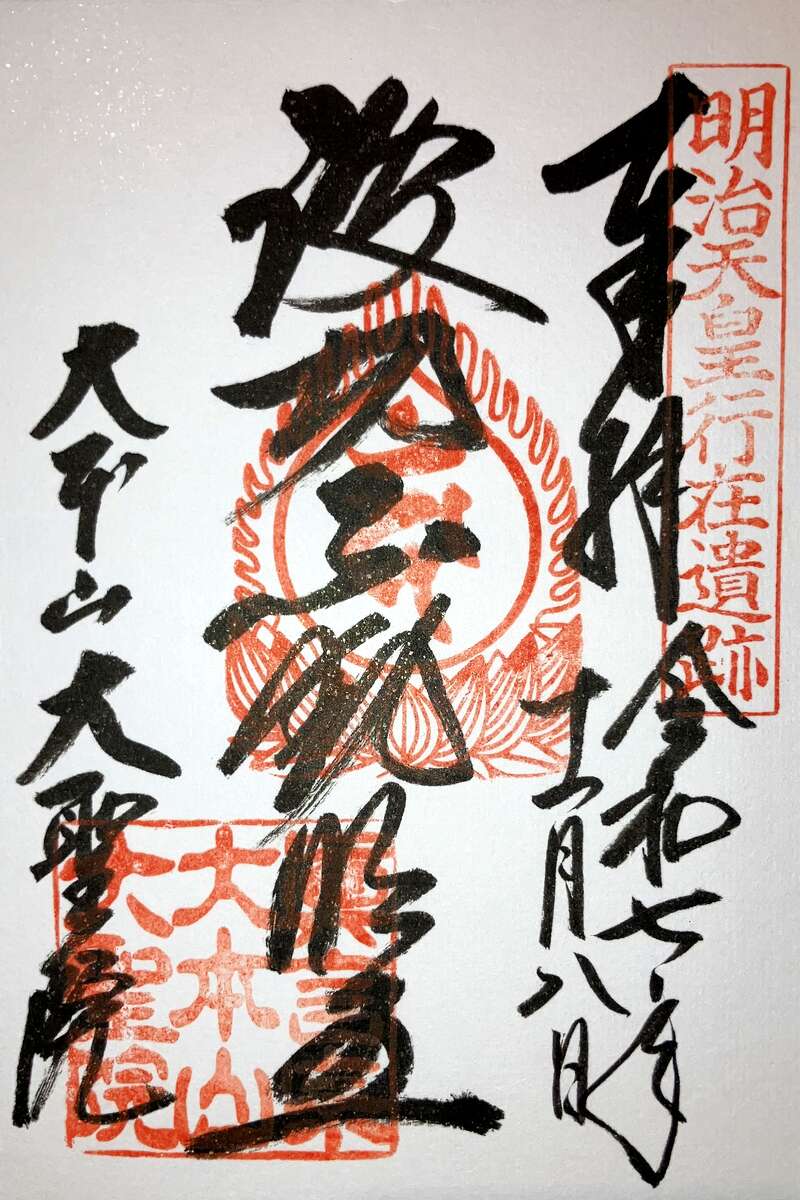 明治天皇行在遺跡
奉拝
令和七年
十一月八日
波切不動明王
大本山大聖院
真言宗
大本山
大聖院